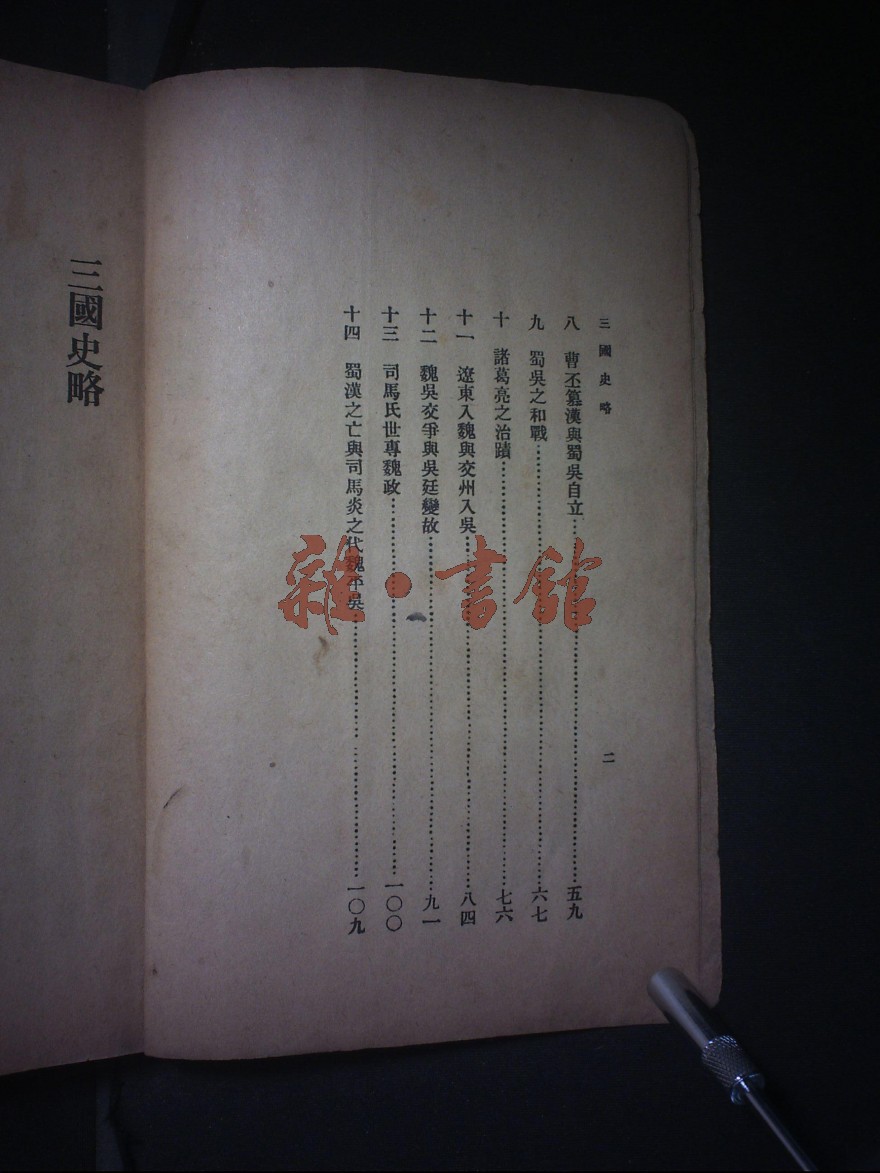 三國史略
二
八 曹丕篡漢與蜀吳自立……五九
九 蜀吳之和戰……六七
十 諸葛亮之治蹟……七六
十一 遼東入魏與交州入吳……八四
十二 魏吳交爭與吳廷變故……九一
十三 司馬氏世專魏政……一〇〇
十四 蜀漢之亡與司馬炎之代魏平吳……一〇九
三國史略
雜·書館